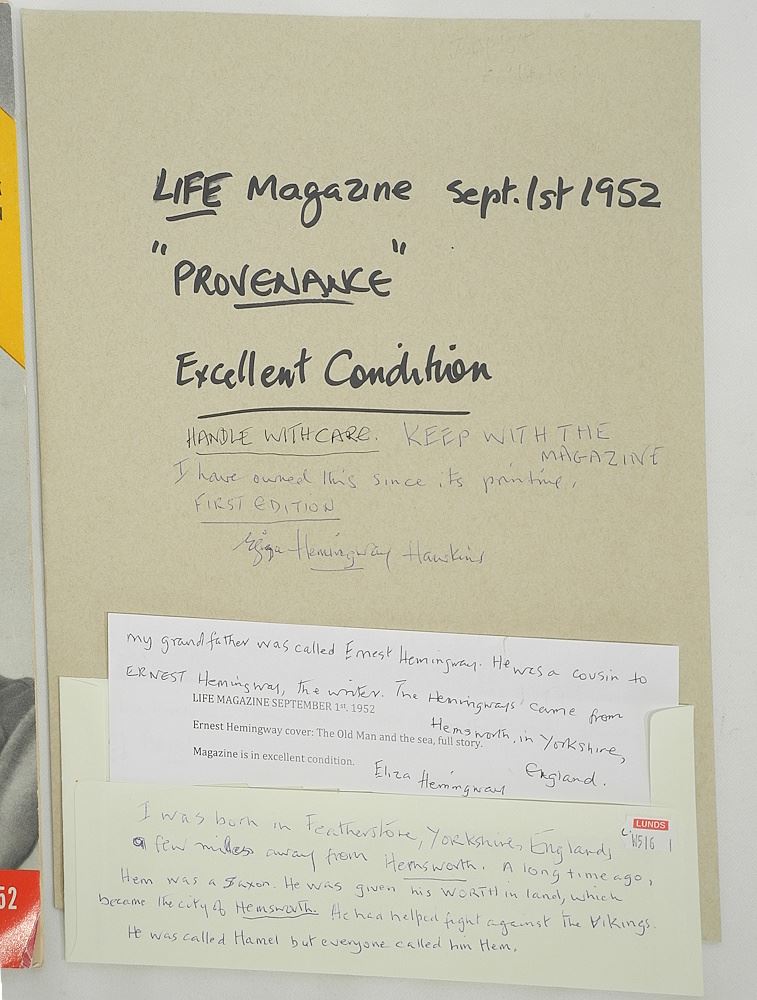 LIFE Magazine Sept. 1st 1952
"PROVENANCE"
Excellent Condition
HANDLE WITH CARE. KEEP WITH THE
MAGAZINE
I have owned this since its printing,
FIRST EDITION
Hemingway Hawkins
my grandfather was called Ernest Hemingway. He was a cousin to
ERNEST Hemingway, the writer. The Hemingways came from
Hemsworth, in Yorkshire,
England.
LIFE MAGAZINE SEPTEMBER 1st. 1952
Ernest Hemingway cover: The Old Man and the sea, full story.
Magazine is in excellent condition.
Eliza Hemingway
I was born in Featherstone, Yorkshire, England,
a few miles away from Hemsworth. A long time ago,
Hem was a Saxon. He was given his WORTH in land, which
became the city of Hemsworth. He had helped fight against the Vikings.
He was called Hamel but everyone called him Hem.
LUNDS
52